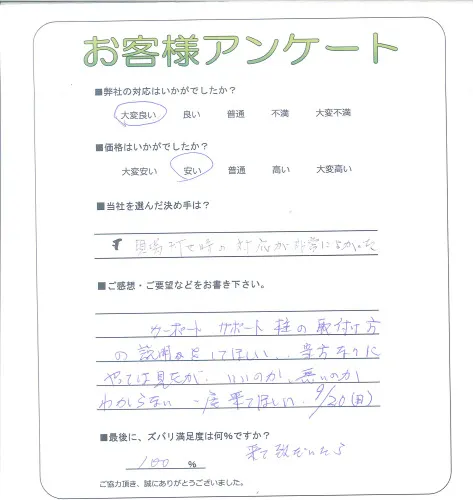 お客様アンケート
■弊社の対応はいかがでしたか？
大変良い 良い 普通 不満 大変不満
■価格はいかがでしたか？
大変安い 安い 普通 高い 大変高い
■当社を選んだ決め手は？
現場打せ時の対応が非常によかった
■ご感想・ご要望などをお書き下さい。
カーポート サポート柱の取付け方
の説明をしてほしい、当方なりに
やっては見たが、いいのか、悪いのか
わからない 一度来てほしい 9/20(日)
来て頂いたら
■最後に、ズバリ満足度は何%ですか？
100 %
ご協力頂き、誠にありがとうございました。